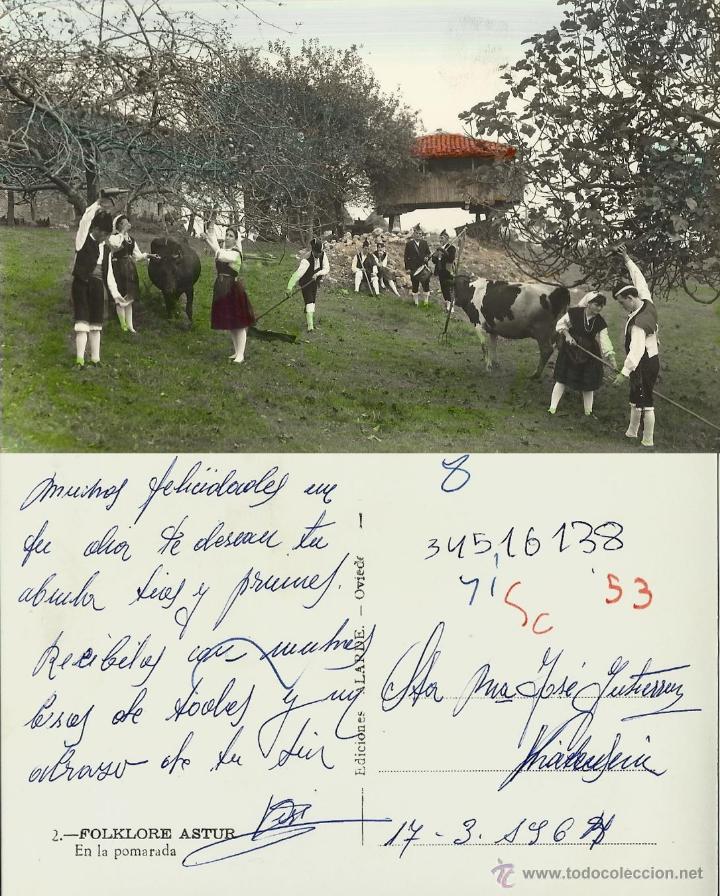 muchas felicidades en
tu día te desean tu
abuela tios y primos.
Recibelos con muchos
besos de todos y un
abrazo de tu
2.—FOLKLORE ASTUR
En la pomarada
Ediciones ALARDE. — Oviedo
8
34516138
Sc 53
Sta Mª José Gutierrez
17-3-196
www.todocoleccion.net